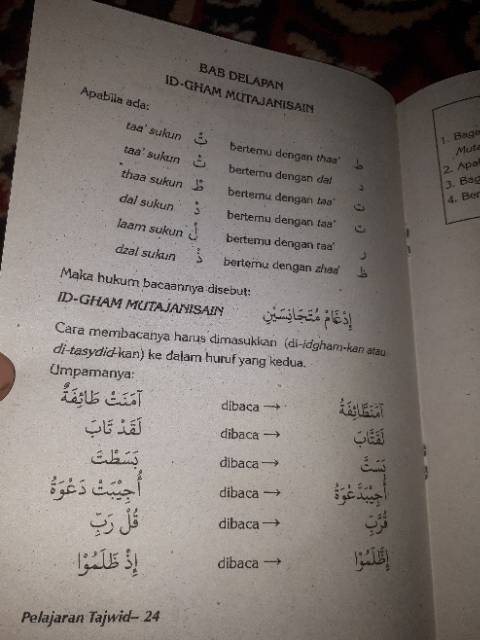 BAB DELAPAN
ID-GHAM MUTAJANISAIN
Apabila ada:
taa' sukun تْ bertemu dengan thaa' ط
taa' sukun تْ bertemu dengan dal د
thaa sukun طْ bertemu dengan taa' ت
dal sukun دْ bertemu dengan taa' ت
laam sukun لْ bertemu dengan raa' ر
dzal sukun ذْ bertemu dengan zhaa' ظ
Maka hukum bacaannya disebut:
ID-GHAM MUTAJANISAIN إِدْغَامْ مُتَجَانِسَيْنِ
Cara membacanya harus dimasukkan (di-idgham-kan atau
di-tasydid-kan) ke dalam huruf yang kedua.
Umpamanya:
آمَنَتْ طَائِفَةٌ dibaca → آمَنَطَّائِفَةُ
لَقَدْ تَابَ dibaca → لَقَتَّابَ
بَسَطْتَ dibaca → بَسَتَّ
أُجِيْبَتْ دَعْوَةُ dibaca → أُجِيْبَدَّعْوَةُ
قُلْ رَبِّ dibaca → قُرَّبِّ
إِذْ ظَلَمُوْا dibaca → إِظَّلَمُوْا
Pelajaran Tajwid– 24
1. Baga
Muta
2. Apa
3. Bag
4. Ber